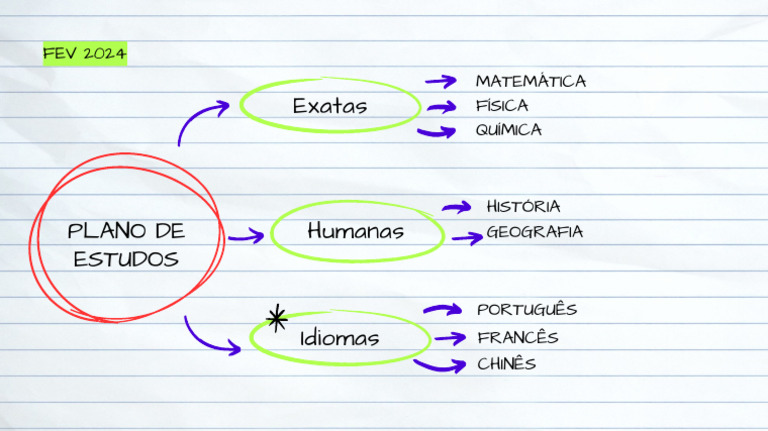 FEV 2024
PLANO DE
ESTUDOS
Exatas
MATEMÁTICA
FÍSICA
QUÍMICA
Humanas
HISTÓRIA
GEOGRAFIA
Idiomas
PORTUGUÊS
FRANCÊS
CHINÊS